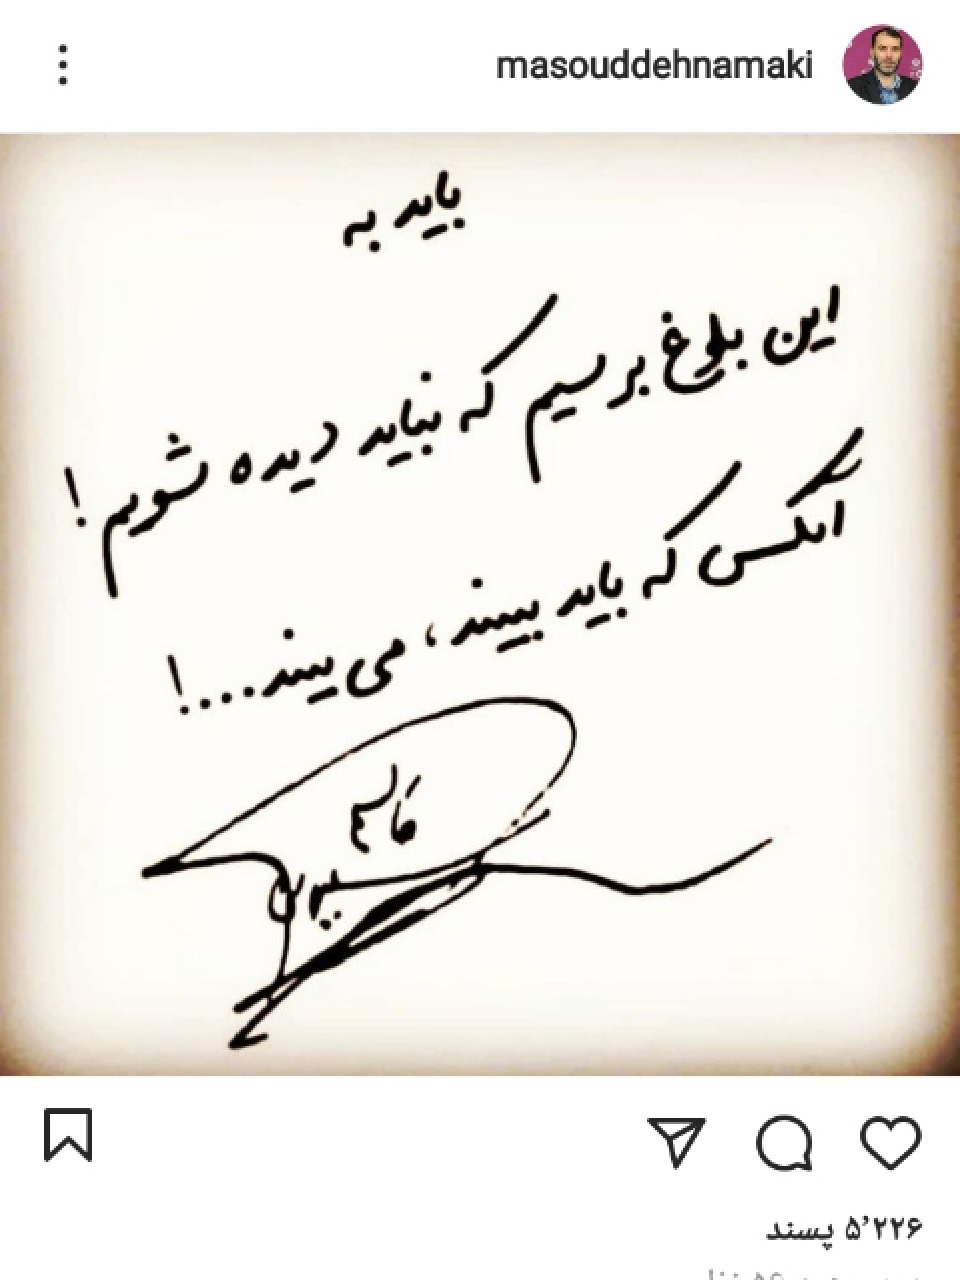 masouddehnamaki
باید به
این بلوغ برسیم که نباید دیده شویم!
آنکس که باید ببیند، می‌بیند...!
قاسم
سلیمانی
۵٬۲۲۶ پسند